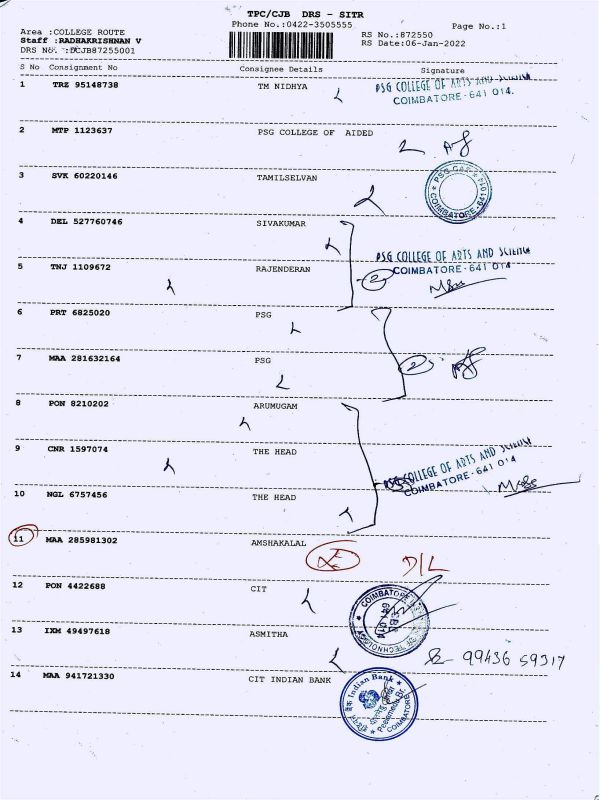 TPC/CJB DRS - SITR
Phone No.:0422-3505555
Page No.:1
Area :COLLEGE ROUTE
Staff :RADHAKRISHNAN V
DRS No. :DCJB87255001
RS No.:872550
RS Date:06-Jan-2022
S No Consignment No Consignee Details Signature
1 TRZ 95148738 TM NIDHYA
PSG COLLEGE OF ARTS AND SCIENCE
COIMBATORE - 641 014.
2 MTP 1123637 PSG COLLEGE OF AIDED
3 SVK 60220146 TAMILSELVAN
PSG CAS
COIMBATORE-641014
4 DEL 527760746 SIVAKUMAR
PSG COLLEGE OF ARTS AND SCIENCE
COIMBATORE - 641 014
5 TNJ 1109672 RAJENDERAN
2
6 PRT 6825020 PSG
7 MAA 281632164 PSG
2
8 PON 8210202 ARUMUGAM
9 CNR 1597074 THE HEAD
PSG COLLEGE OF ARTS AND SCIENCE
COIMBATORE - 641 014
10 NGL 6757456 THE HEAD
11 MAA 285981302 AMSHAKALAL
D/L
12 PON 4422688 CIT
COIMBATORE
641 014
OF TECHNOLOGY
13 IXM 49497618 ASMITHA
99436 59317
14 MAA 941721330 CIT INDIAN BANK
Indian Bank
COIMBATORE